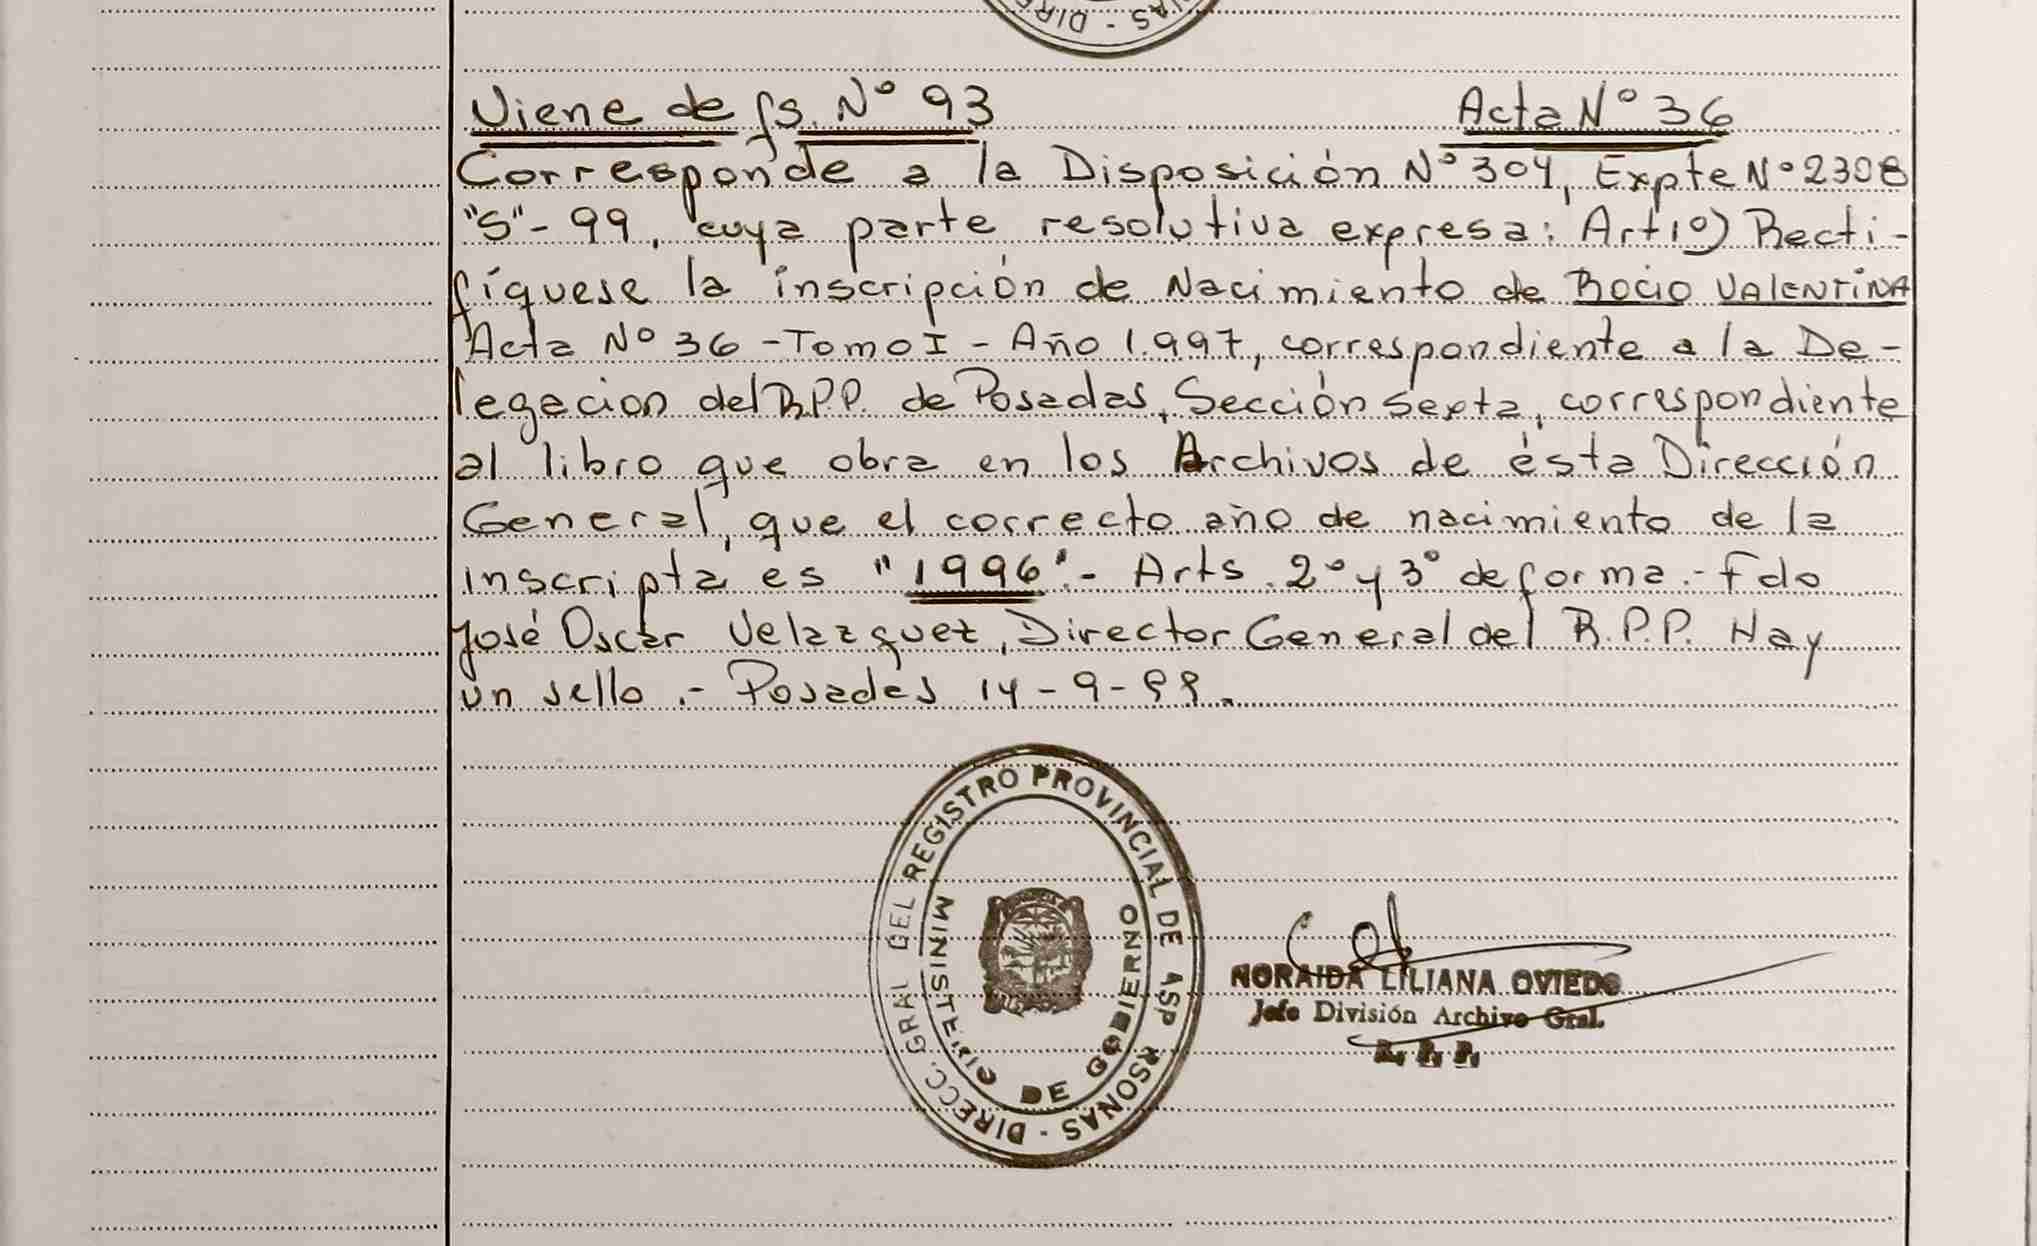 Viene de fs. Nº 93 Acta Nº 36
Corresponde a la Disposición Nº 304, Expte Nº 2308
"S"- 99, cuya parte resolutiva expresa: Art 1º) Recti-
fíquese la inscripción de Nacimiento de ROCIO VALENTINA
Acta Nº 36 - Tomo I - Año 1.997, correspondiente a la De-
legacion del R.P.P. de Posadas, Sección Sexta, correspondiente
al libro que obra en los Archivos de ésta Dirección
General, que el correcto año de nacimiento de la
inscripta es "1996".- Arts. 2º y 3º de forma.- Fdo
José Oscar Velazquez, Director General del R.P.P. Hay
un sello.- Posadas 14-9-99.
DIRECC. GRAL DEL REGISTRO PROVINCIAL DE AS P RSONAS -
MINISTERIO DE GOBIERNO
NORAIDA LILIANA OVIEDO
Jefe División Archivo Gral.
R. P. P.